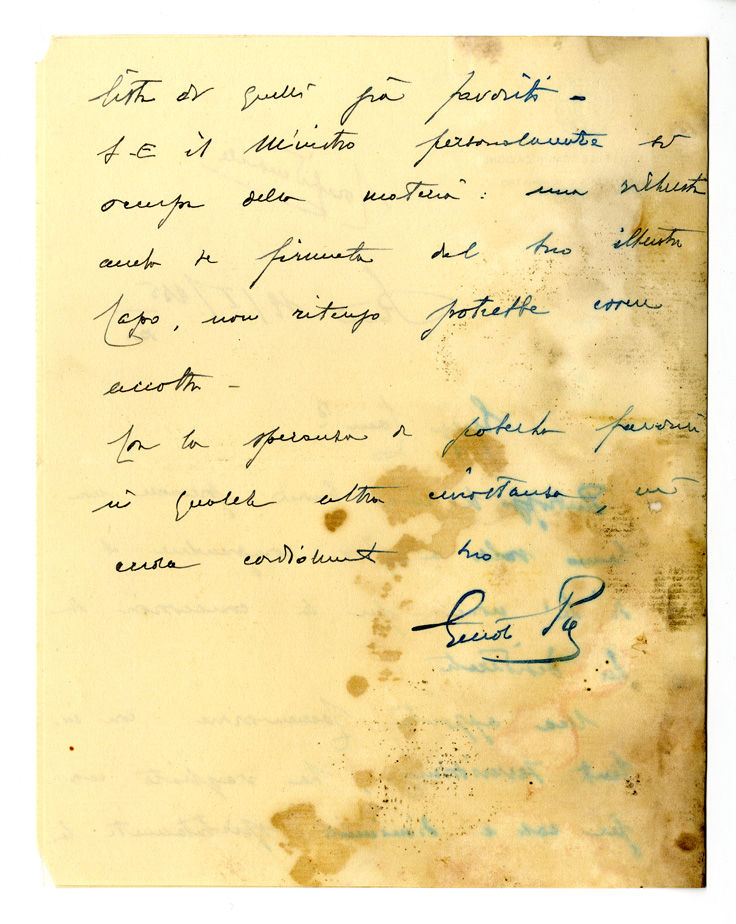 lista di quelli già favoriti -
S.E il Ministro personalmente si
occupa della materia : una richiesta
anche se firmata dal tuo illustre
Capo, non ritengo potrebbe essere
accolta -
Con la speranza di poterti favorire
in qualche altra circostanza, mi
creda cordialmente tuo